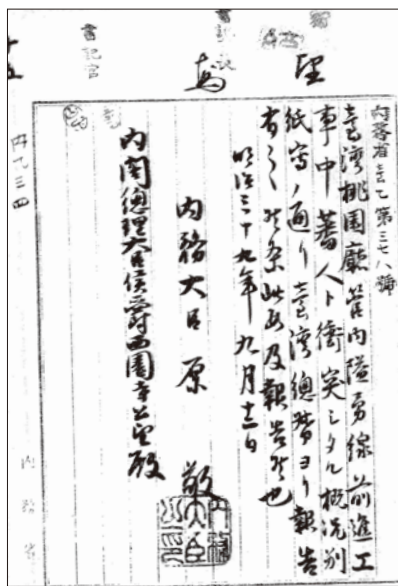 書記官
内務省臺乙第三七八號
臺湾桃園廳管内隘勇線前進工
事中蕃人ト衝突シタル概況別
紙寫ノ通リ臺湾總督ヨリ報告
有之候条此段及報告候也
明治三十九年九月十二日
内務大臣原 敬
内務大臣之印
内閣總理大臣侯爵西園寺公望殿
内務省